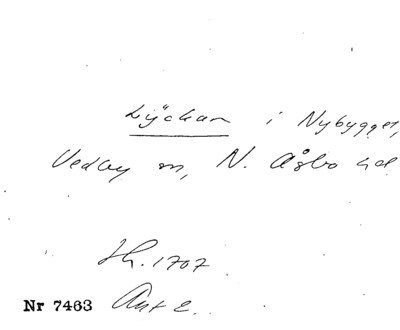 Lÿckan i Nybygget,
Vedby sn, N. Åsbo hd
Jh. 1707
Nr 7463 Ant E.